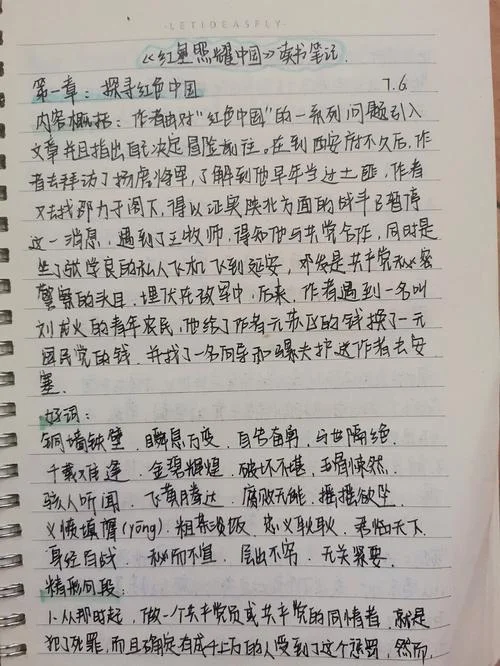 -LETIDEASFLY-
《红星照耀中国》读书笔记.
第一章：探寻红色中国 7.6
内容概括：作者由对"红色中国"的一系列问题引入
文章并且指出自己决定冒险前往。在到西安府不久后，作
者去拜访了杨虎将军，了解到他早年当过土匪，作者
又去找邵力子阁下，得以证实陕北方面的战斗已暂停
这一消息，遇到了王牧师，得知他与共党合作，同时是
坐了张学良的私人飞机飞到延安，邓发是共产党秘密
警察的头目，埋伏在敌军中，后来，作者遇到一名叫
刘龙火的青年农民，他给了作者一元苏区的钱换了一元
国民党的钱，并找了一名向导和骡夫护送作者去安
塞.
好词：
铜墙铁壁、瞬息万变、自告奋勇、与世隔绝.
千载难逢、金碧辉煌、破坏不堪、毛骨悚然、
骇人听闻、飞黄腾达、腐败无能、摇摇欲坠
义愤填膺(yīng)、粗茶淡饭、忠心耿耿、君临天下、
身经百战、秘而不宣、层出不穷、无关紧要.
精彩句段：
1.从那时起，做一个共产党员或共产党的同情者，就是
犯了死罪，而且确实有成千上万的人受到了这个惩罚，然而，